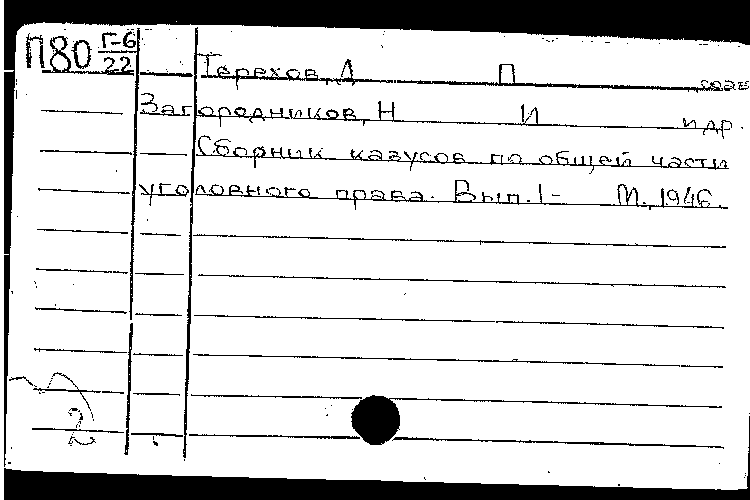 П80 Г-6
22
Терехов, Д П соав
Загородников, Н И и др.
Сборник казусов по общей части
уголовного права. Вып. 1- М., 1946.
2